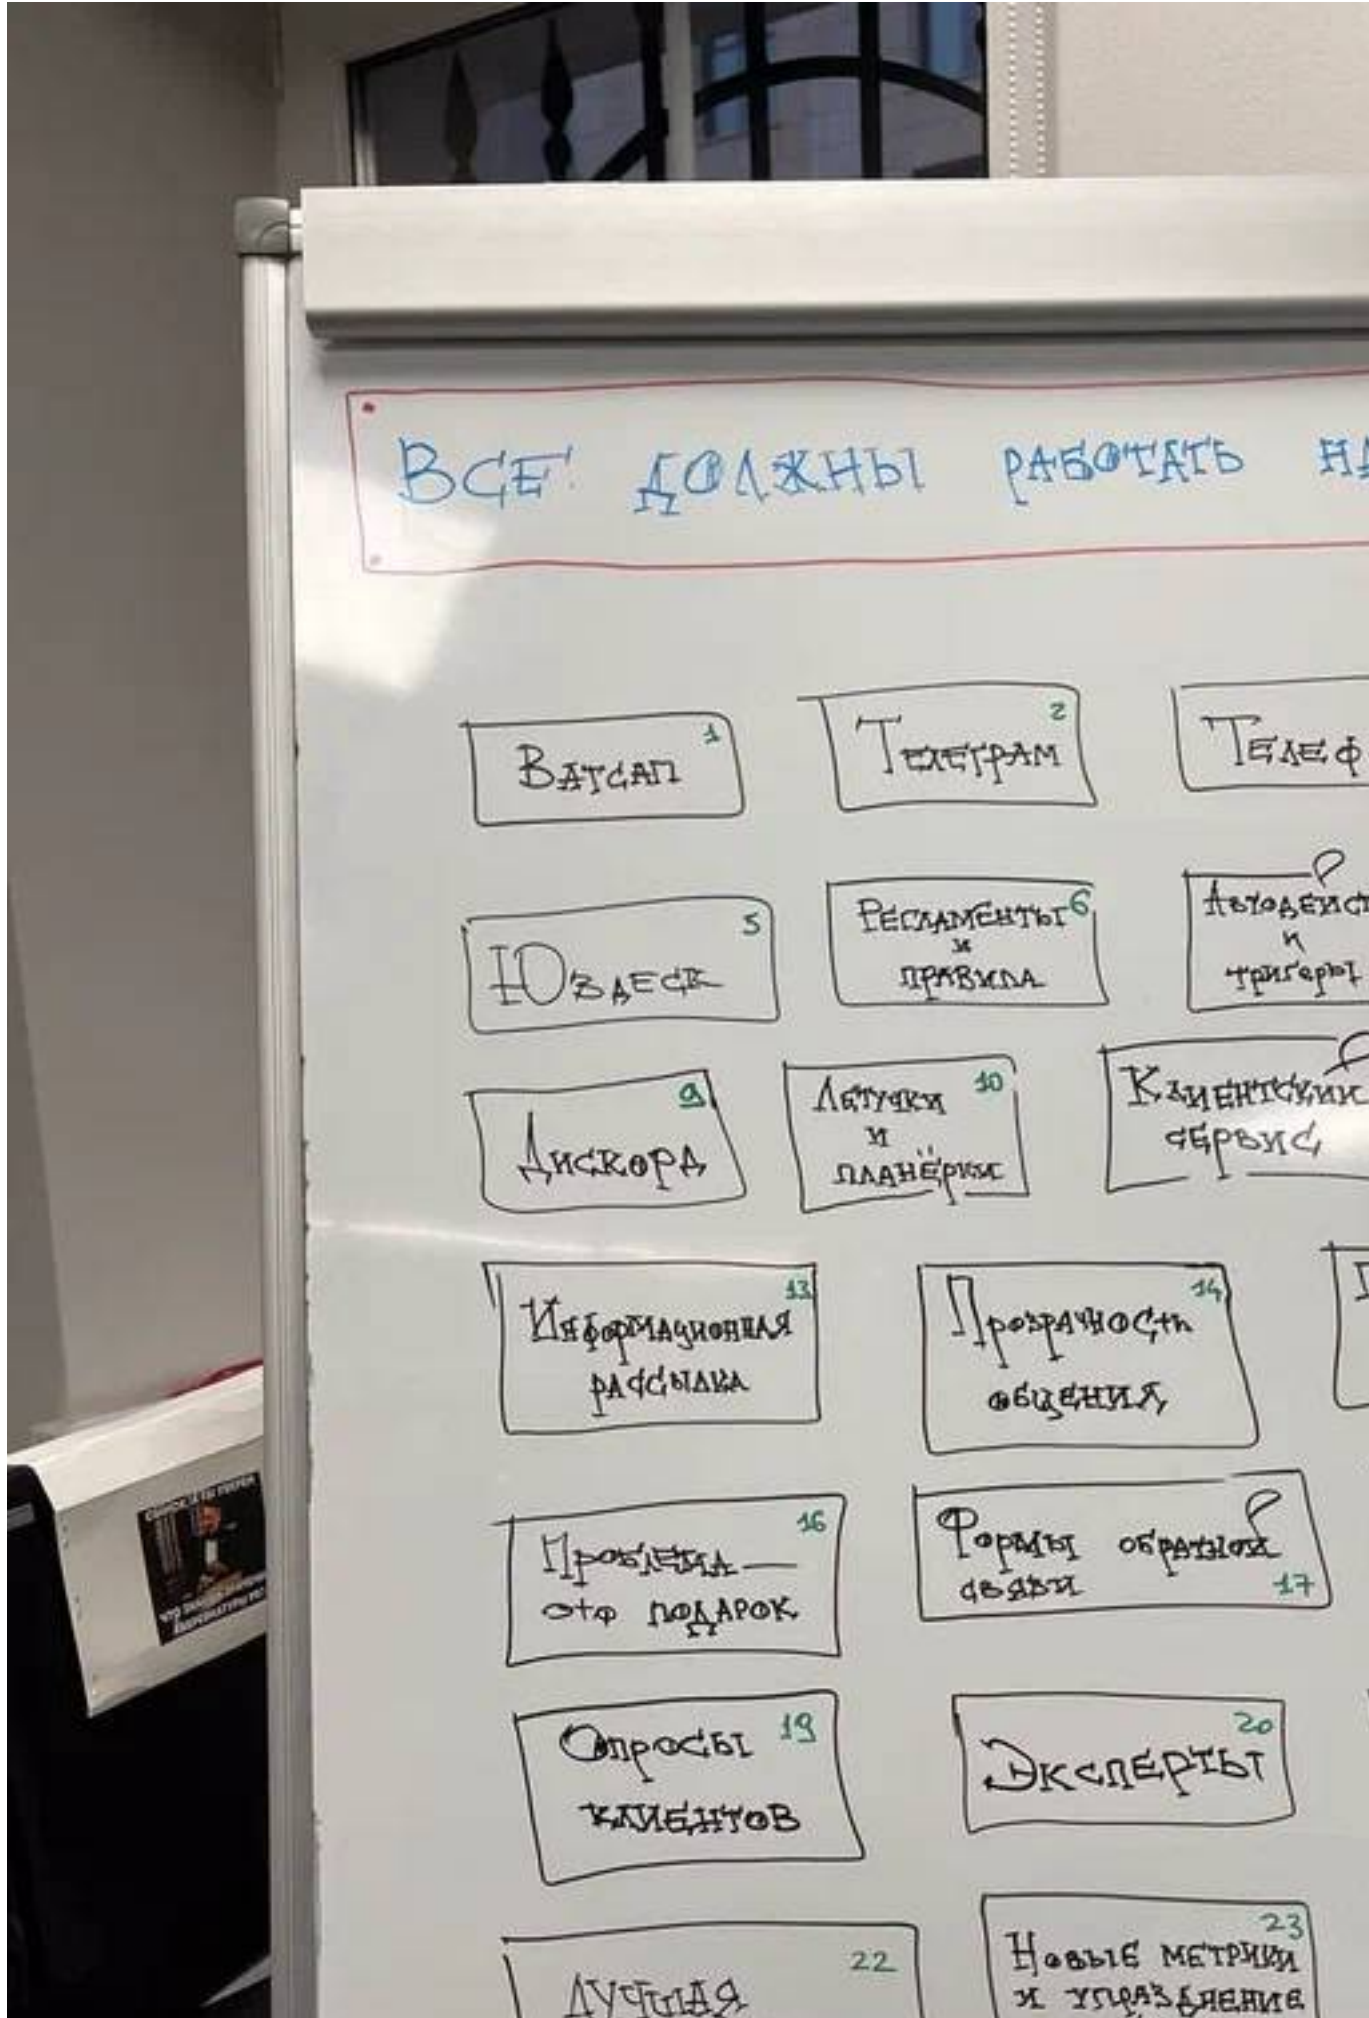 ВСЕ ДОЛЖНЫ РАБОТАТЬ НА
1
ВАТСАП
2
ТЕЛЕГРАМ
ТЕЛЕФ
5
ЮЗДЕСК
6
РЕГЛАМЕНТЫ
И
ПРАВИЛА
АВТОДЕЙСТ
И
ТРИГЕРЫ
9
ДИСКОРД
10
ЛЕТУЧКИ
И
ПЛАНЁРКИ
КЛИЕНТСКИЙ
СЕРВИС
13
ИНФОРМАЦИОННАЯ
РАССЫЛКА
14
ПРОЗРАЧНОСТЬ
ОБЩЕНИЯ
16
ПРОБЛЕМА —
ЭТО ПОДАРОК
ФОРМЫ ОБРАТНОЙ
СВЯЗИ
17
19
ОПРОСЫ
КЛИЕНТОВ
20
ЭКСПЕРТЫ
22
ЛУЧШАЯ
23
НОВЫЕ МЕТРИКИ
И УПРАЗДНЕНИЕ